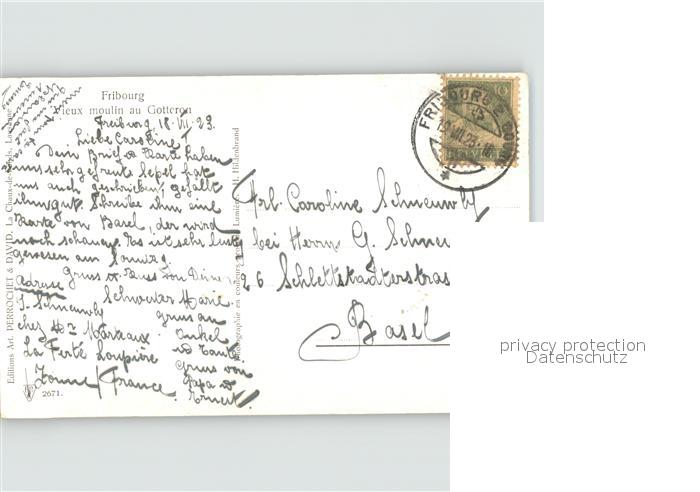 Fribourg
Vieux moulin au Gotteron
Freiburg, 18. VII. 23.
Liebe Caroline!
Dein Brief & Karte haben
uns sehr gefreut. Sepel hat
uns auch geschrieben, gefällt
ihm gut. Schreibe ihm eine
Karte von Basel, der wird
noch schauen. Es ist sehr lustig
gewesen am Sonntag.
Gruss & Kuss von Deiner
Schwester Marie
Adresse
J. Schneuwly
chez Mr Marteaux
La Ferté Loupière
Yonne / France
Gruss an
Onkel
und Tante
Gruss von
Papa &
Ernest.
2671.
Editions Art. DERROCHET & DAVID. La Chaux-de-Fonds, Lausanne
Photographie en couleurs Lumière. H. Hildenbrand
FRIBOURG 2
18.VII.23.
HELVETIA
10
Frl. Caroline Schneuwly
bei Herrn G. Schneu
26 Schlettstadterstras
Basel
privacy protection
Datenschutz